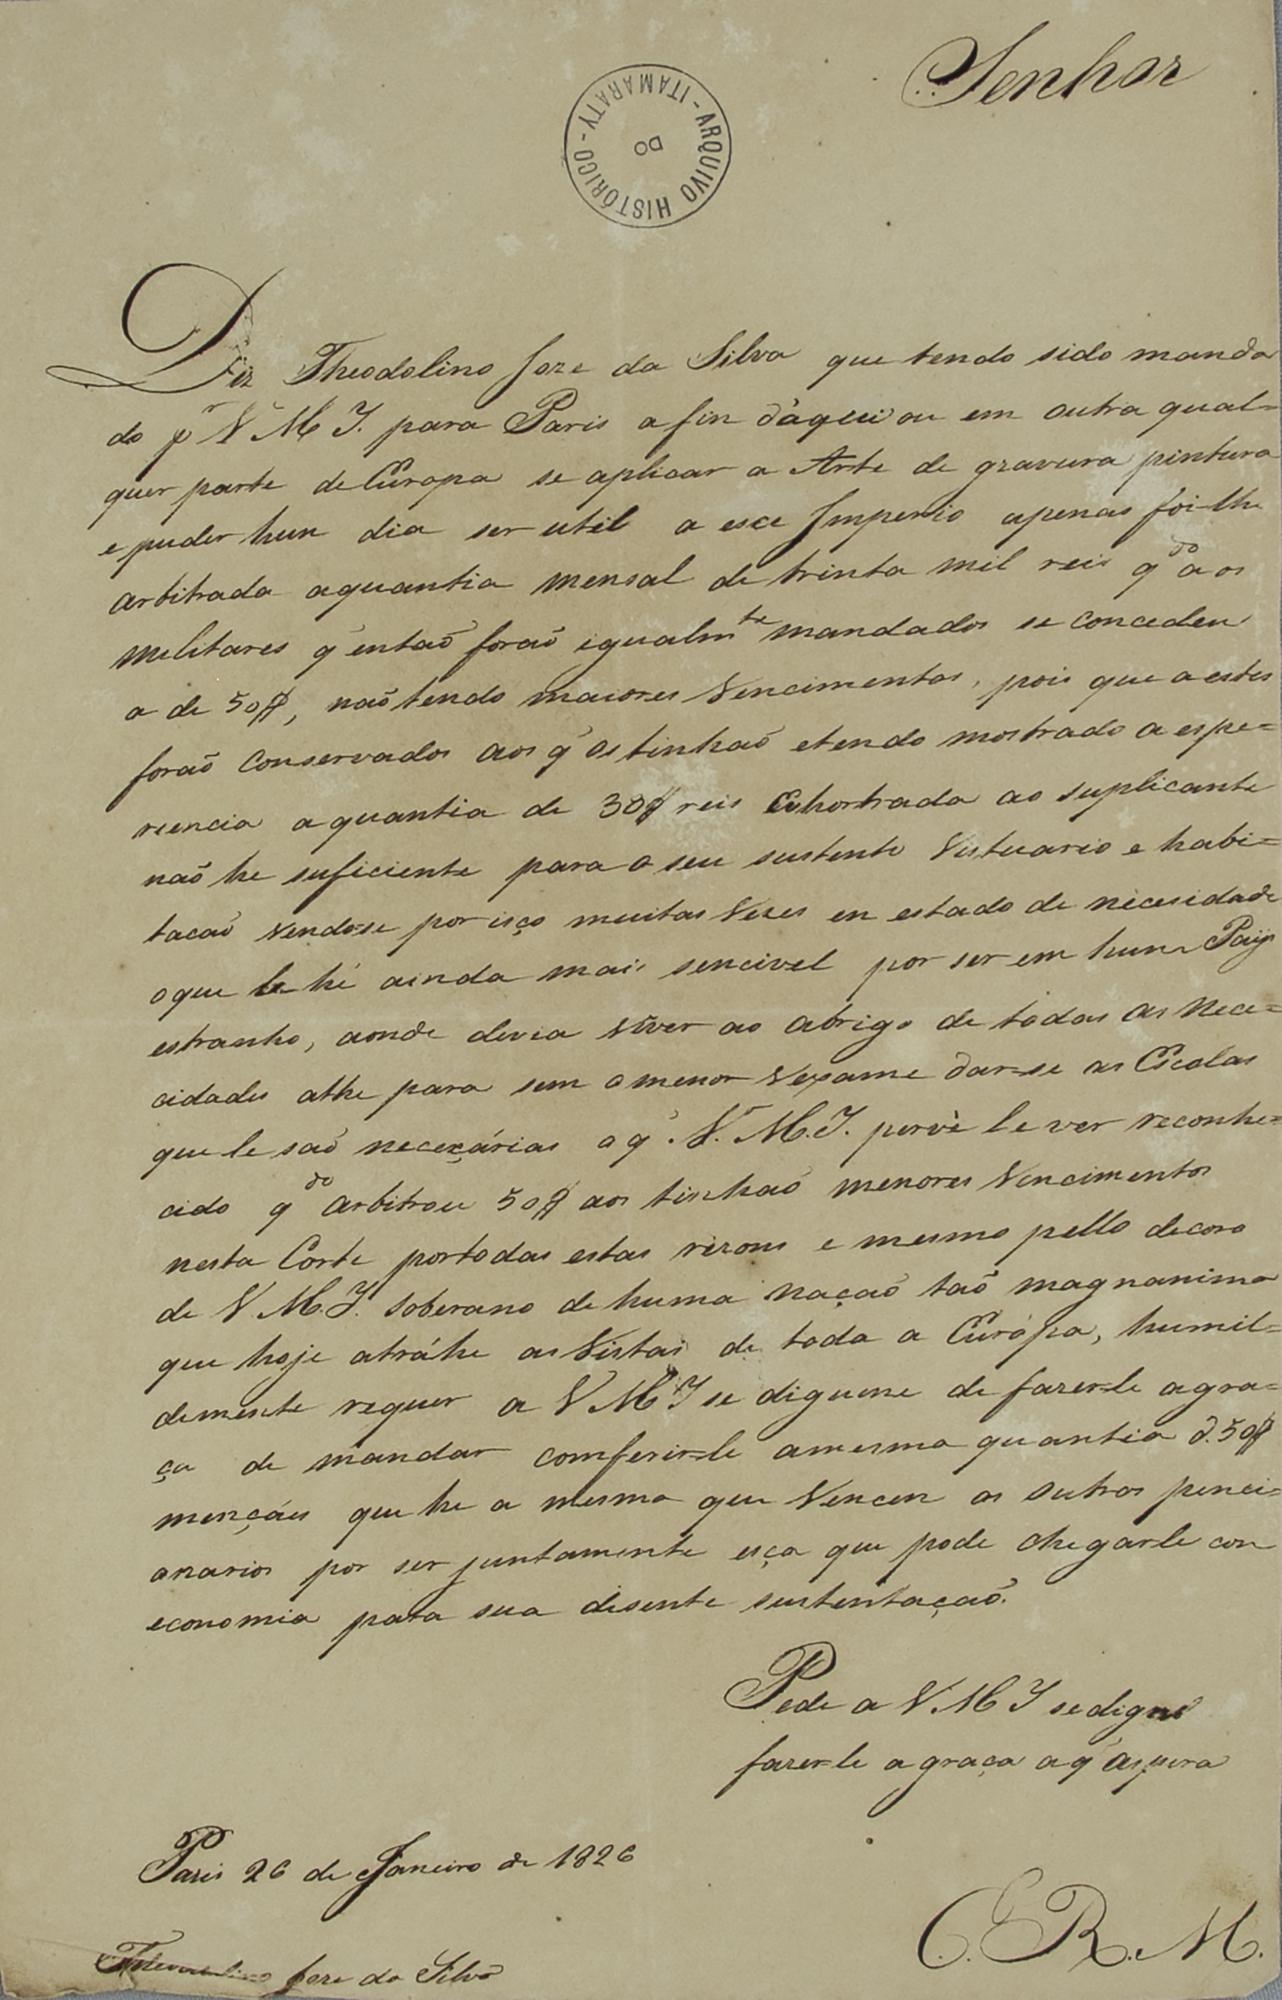 Senhor
ARQUIVO HISTÓRICO DO ITAMARATY
Diz Theodolino Joze da Silva que tendo sido manda
do pr V M I. para Paris a fin d'aqui ou em outra qual=
quer parte de Europa se aplicar a Arte de gravura pintura
e puder hun dia ser util a esce Imperio apenas foi-lhe
arbitrada aquantia mensal de trinta mil reis qdo aos
melitares q' entaõ foraõ egualmte mandados se concedeu
a de 50$, naõ tendo maiores Vencimentos, pois que a estes
foraõ conservados aos q' os tinhaõ e tendo mostrado a espe=
riencia a quantia de 30$ reis ao suplicante
naõ he suficiente para o seu sustento Vistuario e habi=
tacaõ vendo-se por isço muitas Vezes en estado de necesidade
o que le hé ainda mais sencivel por ser em hum Paiz
estranho, aonde devia viver ao abrigo de todas as Nece=
cidades athe para sem o menor Vexame dar=se as Escolas
que le saõ neceçárias o q' V. M. I. le ver reconhe=
cido qdo arbitrou 50$ aos tinhaõ menores Vencimentos
nesta Corte por todas estas rezons e mesmo pello decoro
de V M. I. soberano de huma Naçaõ taõ magnanima
que hoje atráhe as Vistas de toda a Európa, humil=
demente requer a V M I se digune de fazer=le agra=
ça de mandar comferir=le amesma quantia d. 50$
mençáes que he a mesma que Vencen os outros penci=
onarios por ser juntamente esça que pode chegar=le con
economia para sua disente sustentaçaõ.
Pede a V. M I se digne
fazer=le a graça a q' aspira
Paris 26 de Janeiro de 1826
E. R. M.
Joze da Silva